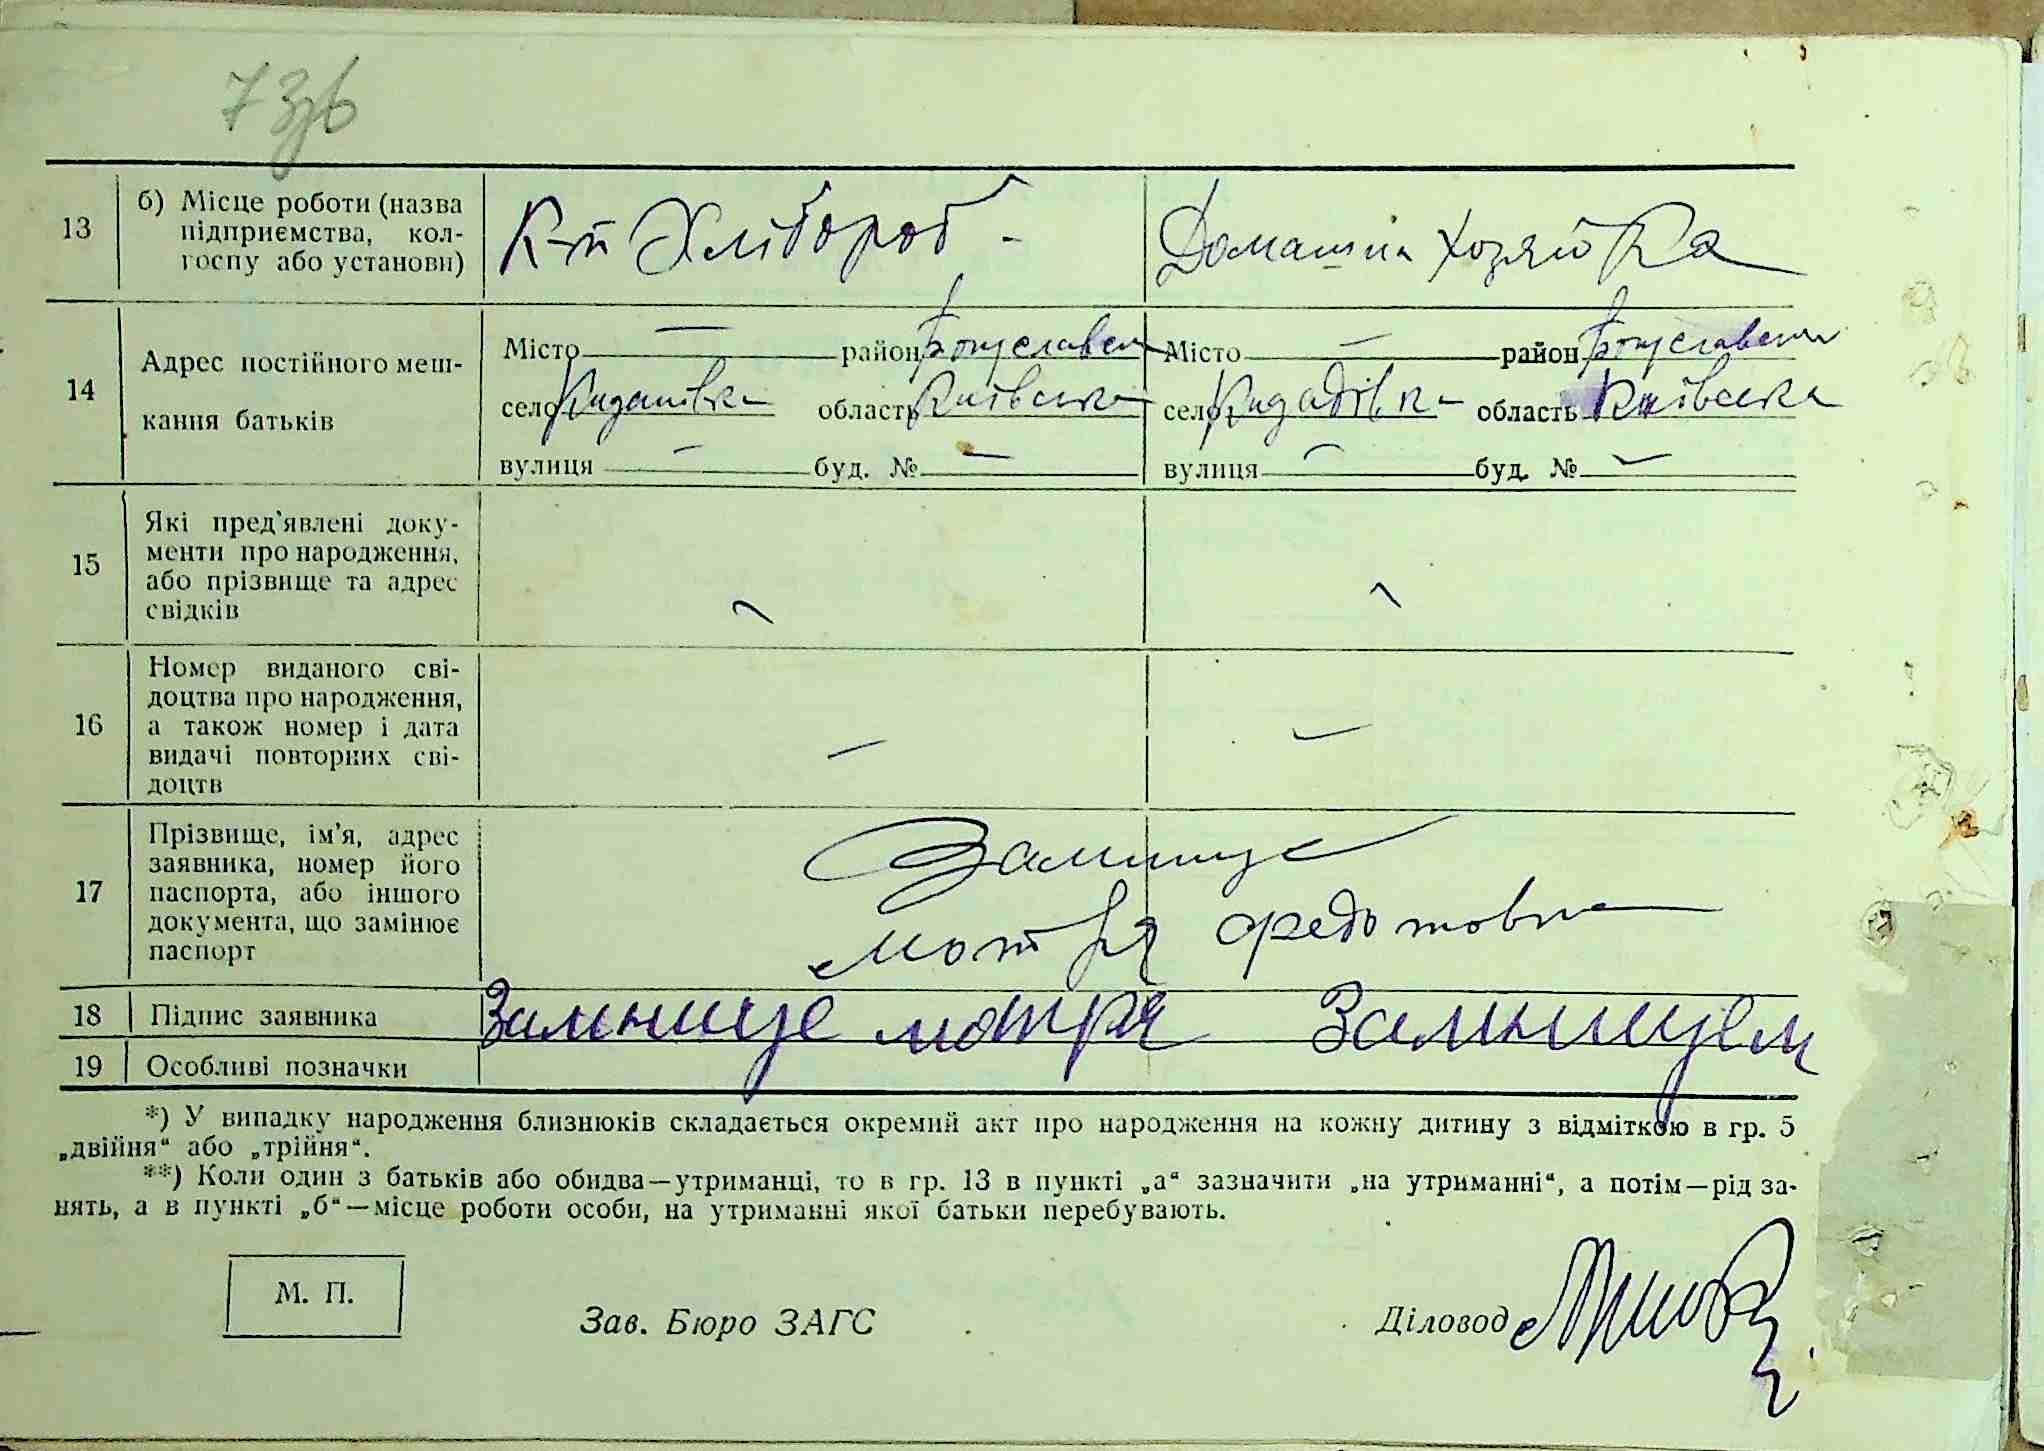 73зв
13 б) Місце роботи (назва
підприємства, кол-
госпу або установи)
К-п Хлібороб - Домашня хозяйка
14 Адрес постійного меш-
кання батьків
Місто — район Богуславськ Місто — район Богуславськ
село область Київська село область Київська
вулиця — буд. № — вулиця — буд. № —
15 Які пред'явлені доку-
менти про народження,
або прізвище та адрес
свідків
16 Номер виданого сві-
доцтва про народження,
а також номер і дата
видачі повторних сві-
доцтв
17 Прізвище, ім'я, адрес
заявника, номер його
паспорта, або іншого
документа, що замінює
паспорт
Мотря Федотовна
18 Підпис заявника Мотря
19 Особливі позначки
*) У випадку народження близнюків складається окремий акт про народження на кожну дитину з відміткою в гр. 5
„двійня“ або „трійня“.
**) Коли один з батьків або обидва—утриманці, то в гр. 13 в пункті „а“ зазначити „на утриманні“, а потім—рід за-
нять, а в пункті „б“—місце роботи особи, на утриманні якої батьки перебувають.
М. П.
Зав. Бюро ЗАГС Діловод